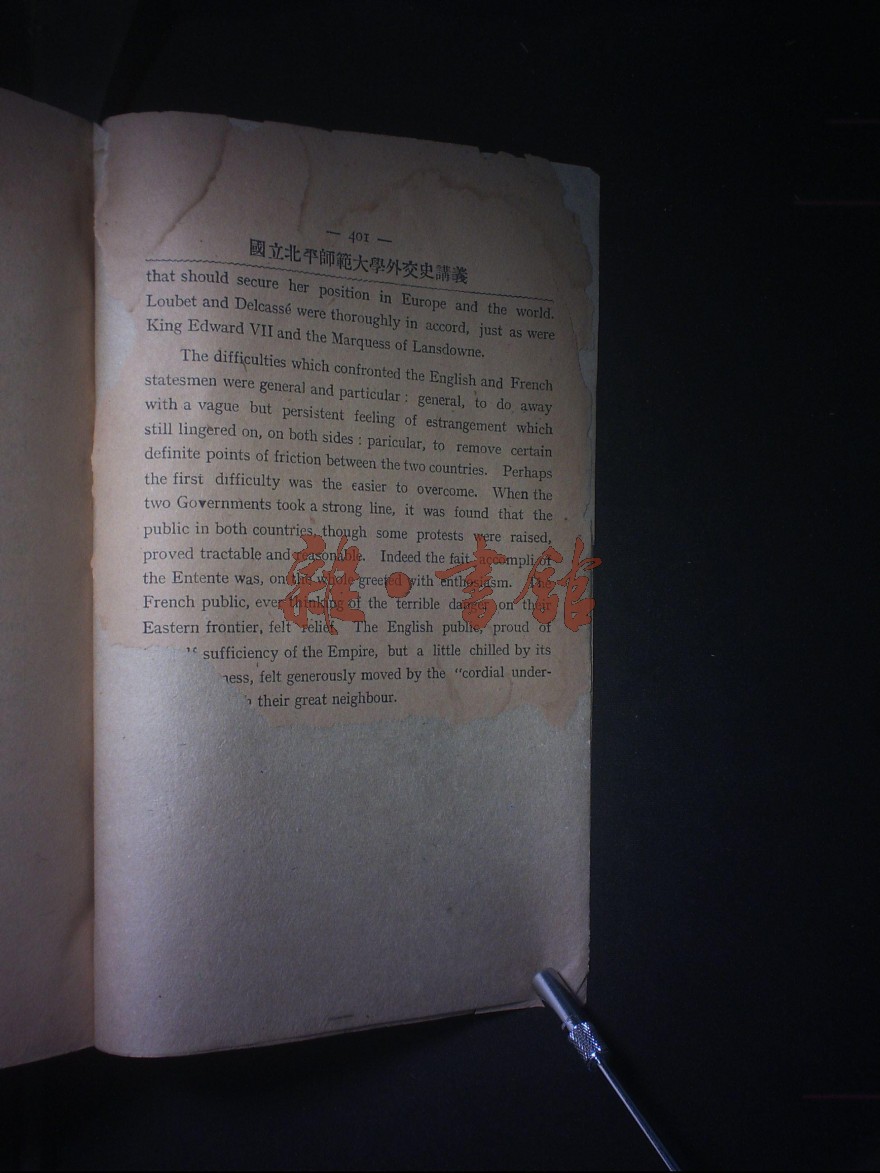 — 401 —
國立北平師範大學外交史講義
that should secure her position in Europe and the world.
Loubet and Delcassé were thoroughly in accord, just as were
King Edward VII and the Marquess of Lansdowne.
The difficulties which confronted the English and French
statesmen were general and particular : general, to do away
with a vague but persistent feeling of estrangement which
still lingered on, on both sides : paricular, to remove certain
definite points of friction between the two countries. Perhaps
the first difficulty was the easier to overcome. When the
two Governments took a strong line, it was found that the
public in both countries, though some protests were raised,
proved tractable and reasonable. Indeed the fait accompli of
the Entente was, on the whole greeted with enthusiasm. The
French public, ever thinking of the terrible danger on their
Eastern frontier, felt relief. The English public, proud of
sufficiency of the Empire, but a little chilled by its
felt generously moved by the “cordial under-
their great neighbour.
雜·書館